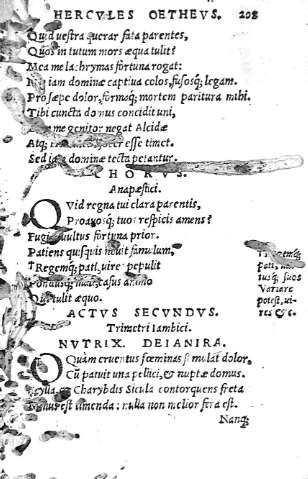 HERCVLES OETHEVS. 208
Quid uestra querar fata parentes,
Quos in tutum mors æqua tulit?
Mea me lachrymas fortuna rogat:
iam dominæ captiua colos, fusosq; legam.
Pro sæpe dolor, formaq; mortem paritura mihi.
Tibi cuncta domus concidit uni,
me genitor negat Alcidæ
Atq; esse timet.
Sed iam dominæ tecta petantur.
CHORVS.
Anapæstici.
QVid regna tui clara parentis,
Proauosq; tuos respicis amens?
Fugit uultus fortuna prior.
Patiens quisquis nouit famulum,
†Regemq; pati, uires pepulit
Pondusq; casus animo
Qui tulit æquo.
†Regemq;
pati,
iusq; suos
Variare
potest, ui-
res &c.
ACTVS SECVNDVS.
Trimetri Iambici.
NVTRIX. DEIANIRA.
OQuàm cruentus fœminas stimulat dolor,
Cū patuit una pellici, & nuptæ domus.
Scylla & Charybdis Sicula contorquens freta
Minus est timenda: nulla non melior fera est.
Nanq;